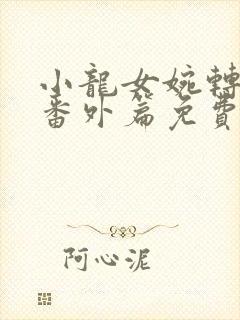 小龍女婉轉
番外篇免費
阿心泥